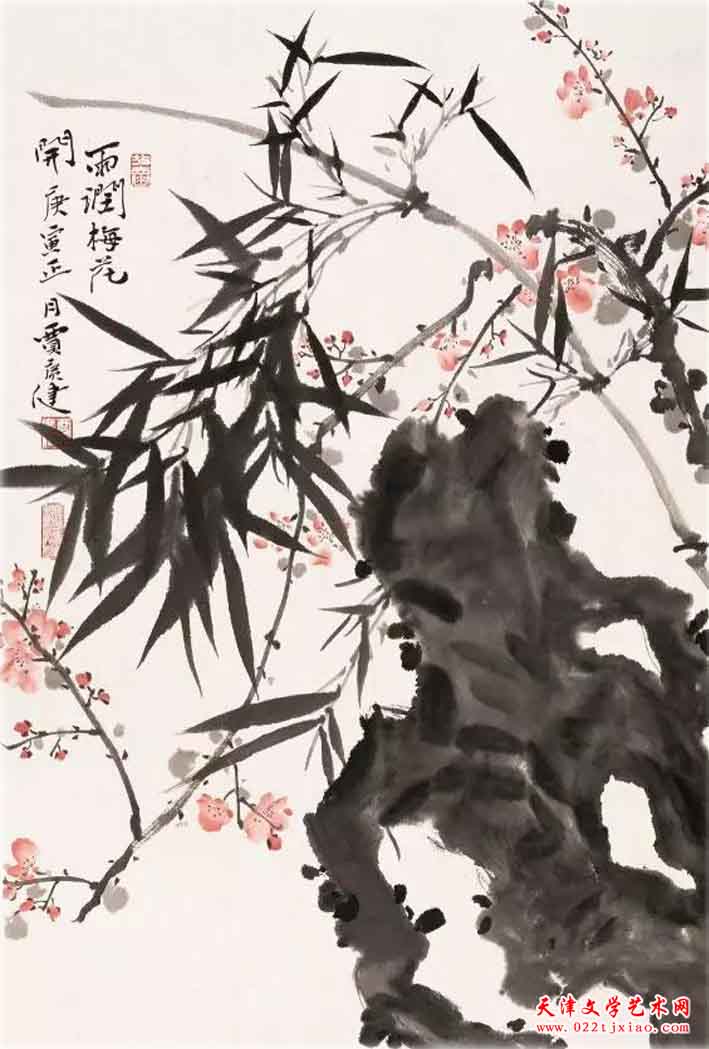 雨潤梅花
開庚寅正月賈彦健
天津文学艺术网
www.022tjxiao.com